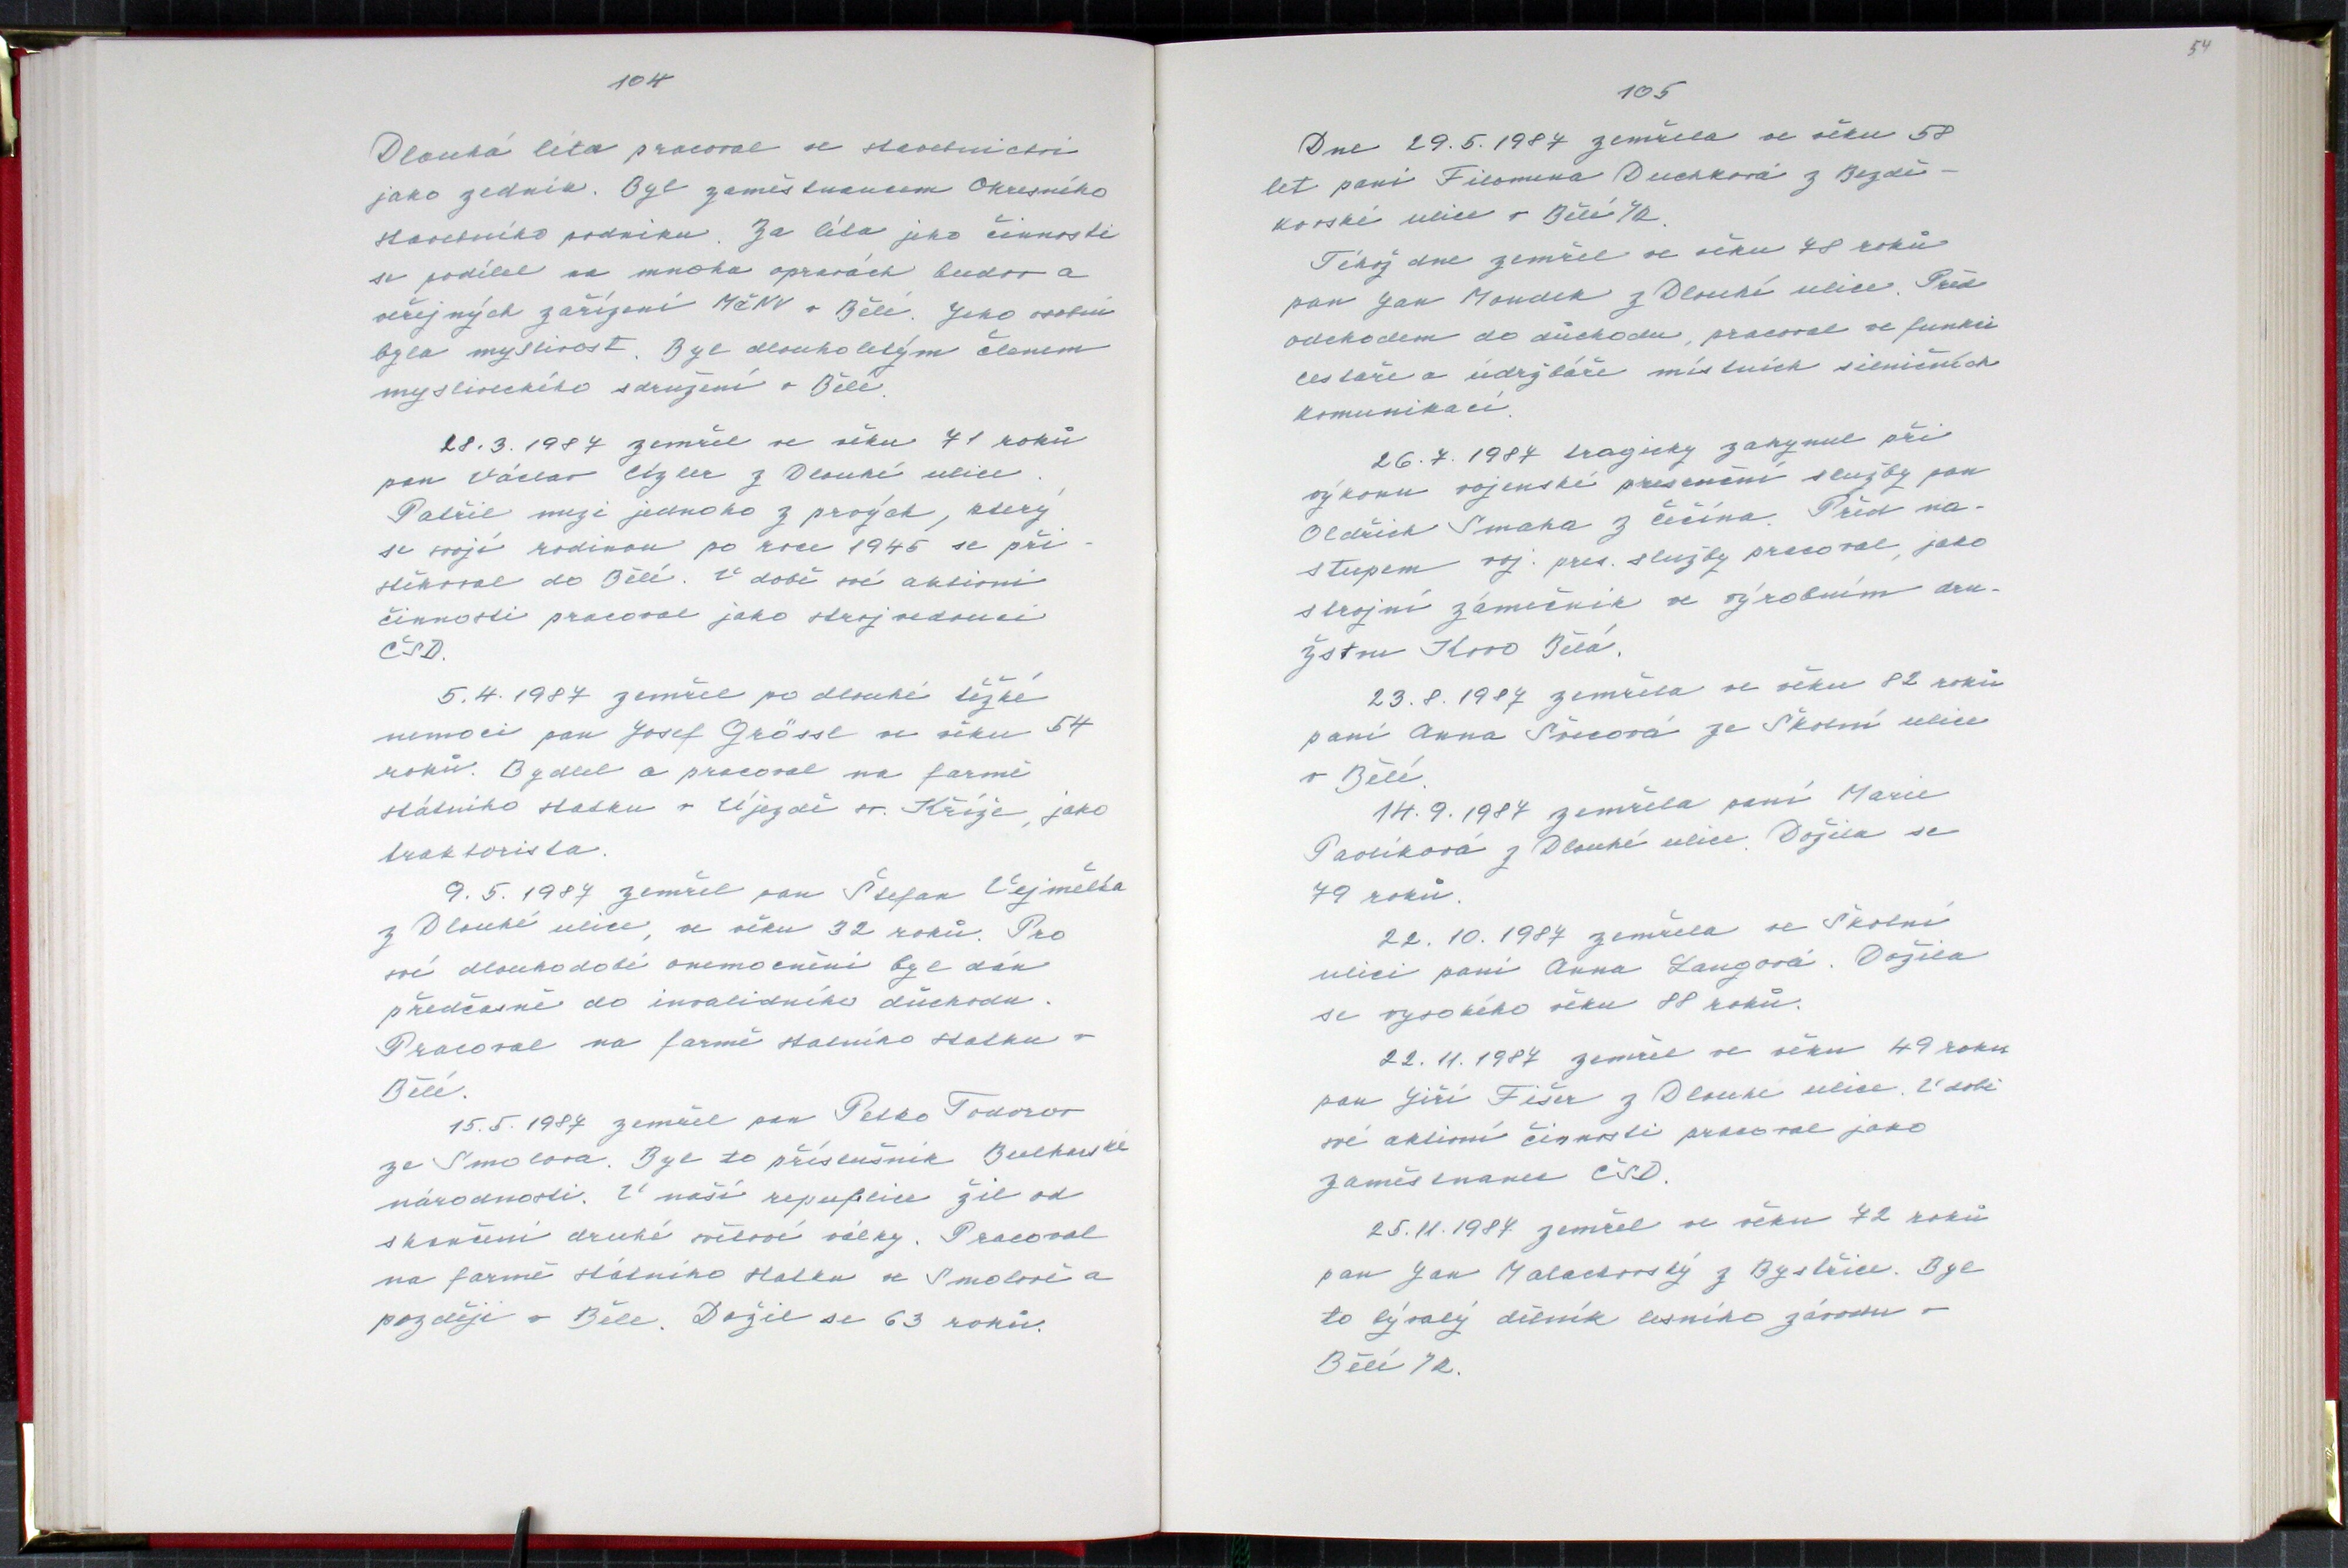 104
Dlouhá léta pracoval ve stavebnictví
jako zedník. Byl zaměstnancem Okresního
stavebního podniku. Za léta jeho činnosti
se podílel na mnoha opravách budov a
veřejných zařízení MěNV v Bělé. Jeho
byla myslivost. Byl dlouholetým členem
mysliveckého sdružení v Bělé.
28.3.1987 zemřel ve věku 71 roků
pan Václav Uzler z Dlouhé ulice.
Patřil mezi jednoho z prvých, který
se svojí rodinou po roce 1945 se při-
stěhoval do Bělé. V době své aktivní
činnosti pracoval jako strojvedoucí
ČSD.
5.4.1987 zemřel po dlouhé těžké
nemoci pan Josef Grössl ve věku 54
roků. Bydlel a pracoval na farmě
státního statku v Újezdě sv. Kříže, jako
traktorista.
9.5.1987 zemřel pan Štefan Vejmělka
z Dlouhé ulice, ve věku 32 roků. Pro
své dlouhodobé onemocnění byl dán
předčasně do invalidního důchodu.
Pracoval na farmě statního statku v
Bělé.
15.5.1987 zemřel pan Petko Todorov
ze Smolova. Byl to příslušník Bulharské
národnosti. V naší republice žil od
skončení druhé světové války. Pracoval
na farmě státního statku ve Smolově a
později v Běle. Dožil se 63 roků.
54
105
Dne 29.5.1987 zemřela ve věku 58
let paní Filomena Duchková z Bezdě-
kovské ulice v Bělé /R.
Téhož dne zemřel ve věku 78 roků
pan Jan Moudek z Dlouhé ulice. Před
odchodem do důchodu, pracoval ve funkci
cestáře a údržbáře místních silničních
komunikací.
26.7.1987 tragicky zahynul při
výkonu vojenské presenční služby pan
Oldřich Smaha z Čečína. Před na-
stupem voj. pres. služby pracoval, jako
strojní zámečník ve výrobním dru-
žstvu Kovo Bělá.
23.8.1987 zemřela ve věku 82 roků
paní Anna Švecová ze Školní ulice
v Bělé.
14.9.1987 zemřela paní Marie
Pavlíková z Dlouhé ulice. Dožila se
79 roků.
22.10.1987 zemřela ve Školní
ulici paní Anna Langová. Dožila
se vysokého věku 88 roků.
22.11.1987 zemřel ve věku 49 roku
pan Jiří Fišer z Dlouhé ulice. V době
své aktivní činnosti pracoval jako
zaměstnanec ČSD.
25.11.1987 zemřel ve věku 72 roků
pan Jan Malachovský z Bystřice. Byl
to bývalý dělník lesního závodu v
Bělé /R.